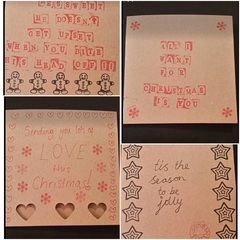 REAL SWEET
HE DOESN'T
GET UPSET
WHEN YOU BITE
HIS HEAD OFF!!
ALL I
WANT
FOR
CHRISTMAS
IS YOU
Sending you lots of
LOVE
this
Christmas!
tis the
season
to be
jolly